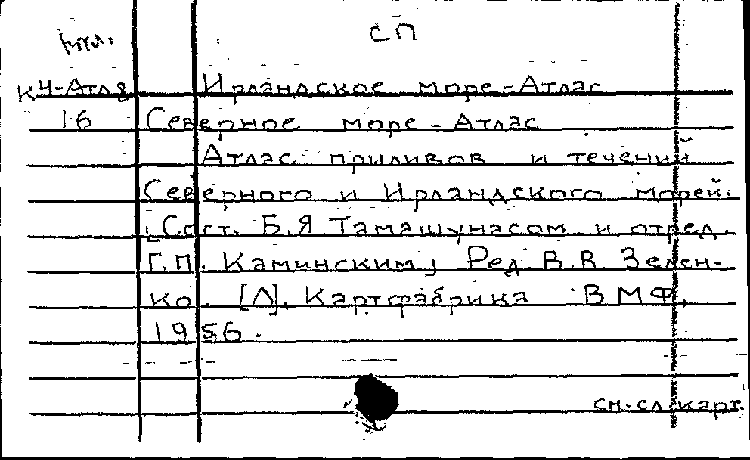 СП
К4-Атл8 Ирландское море-Атлас
16 Северное море - Атлас
Атлас приливов и течений
Северного и Ирландского морей.
[Сост. Б.Я Тамашунасом и отред.
Г.П. Каминским; Ред В.В Зелен-
ко. [Л]. Картфабрика ВМФ,
1956.
см.сл.карт.